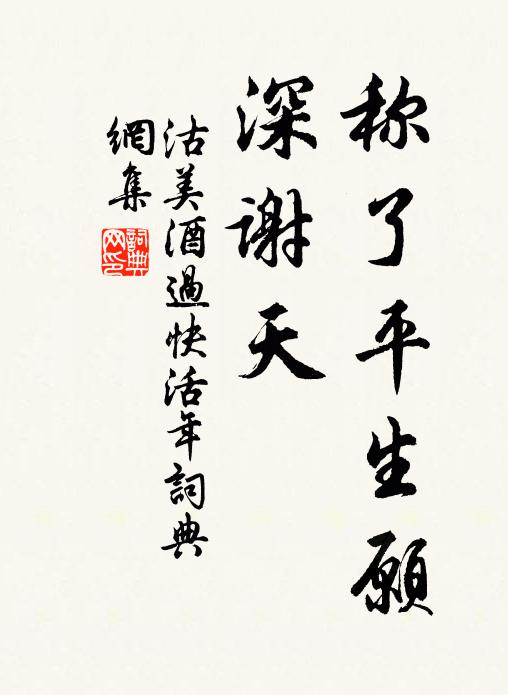 称了平生愿
深谢天
沽美酒過快活年詞典
網集
詞典
网印